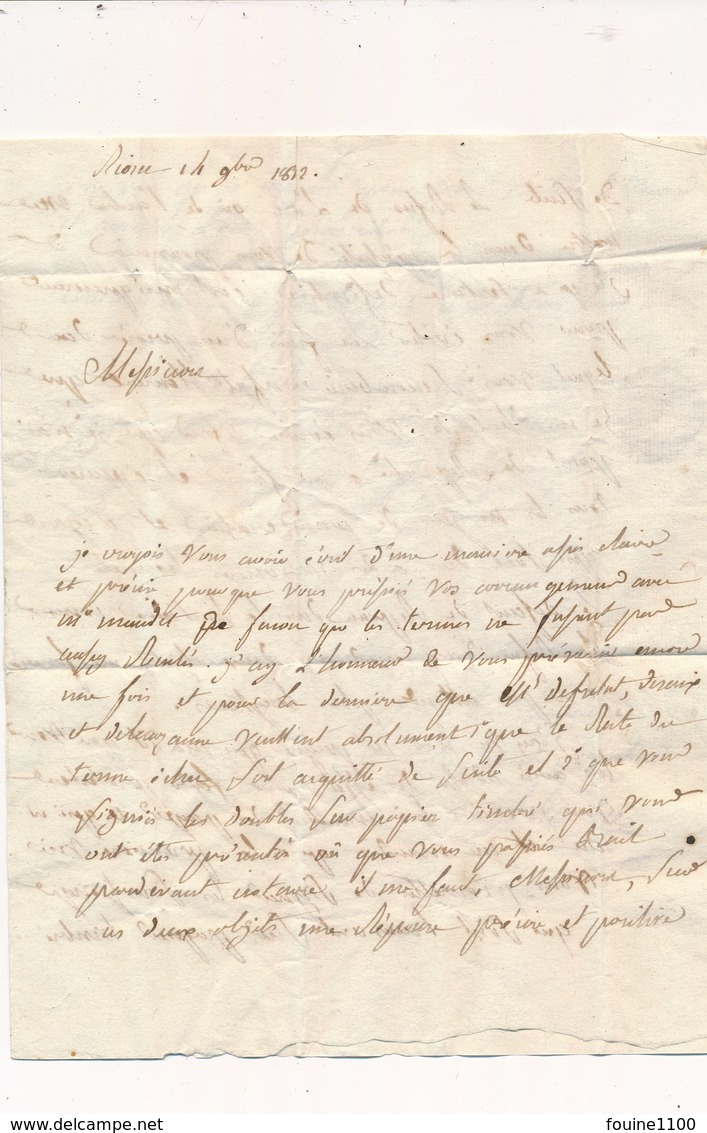 14 9bre 1812.
Messieurs
je croyois vous avoir écrit d'une maniere assés claire
et précise pour que vous prissiés vos arrangement avec
mr de facon que les termes ne fussent pas
aussy j'ay l'honneur de vous prévenir encore
une fois et pour la derniere que
et veullent absolument 1° que le Reste du
terme échu soit acquitté de suite et 2° que vous
signiés les doubles sur papier timbré qui vous
ont étés présentés ou que vous passiés Bail
pardevant notaire il me faut, Messieurs, sur
ces deux objets une Réponse précise et positive
Delcampe.net
fouine1100